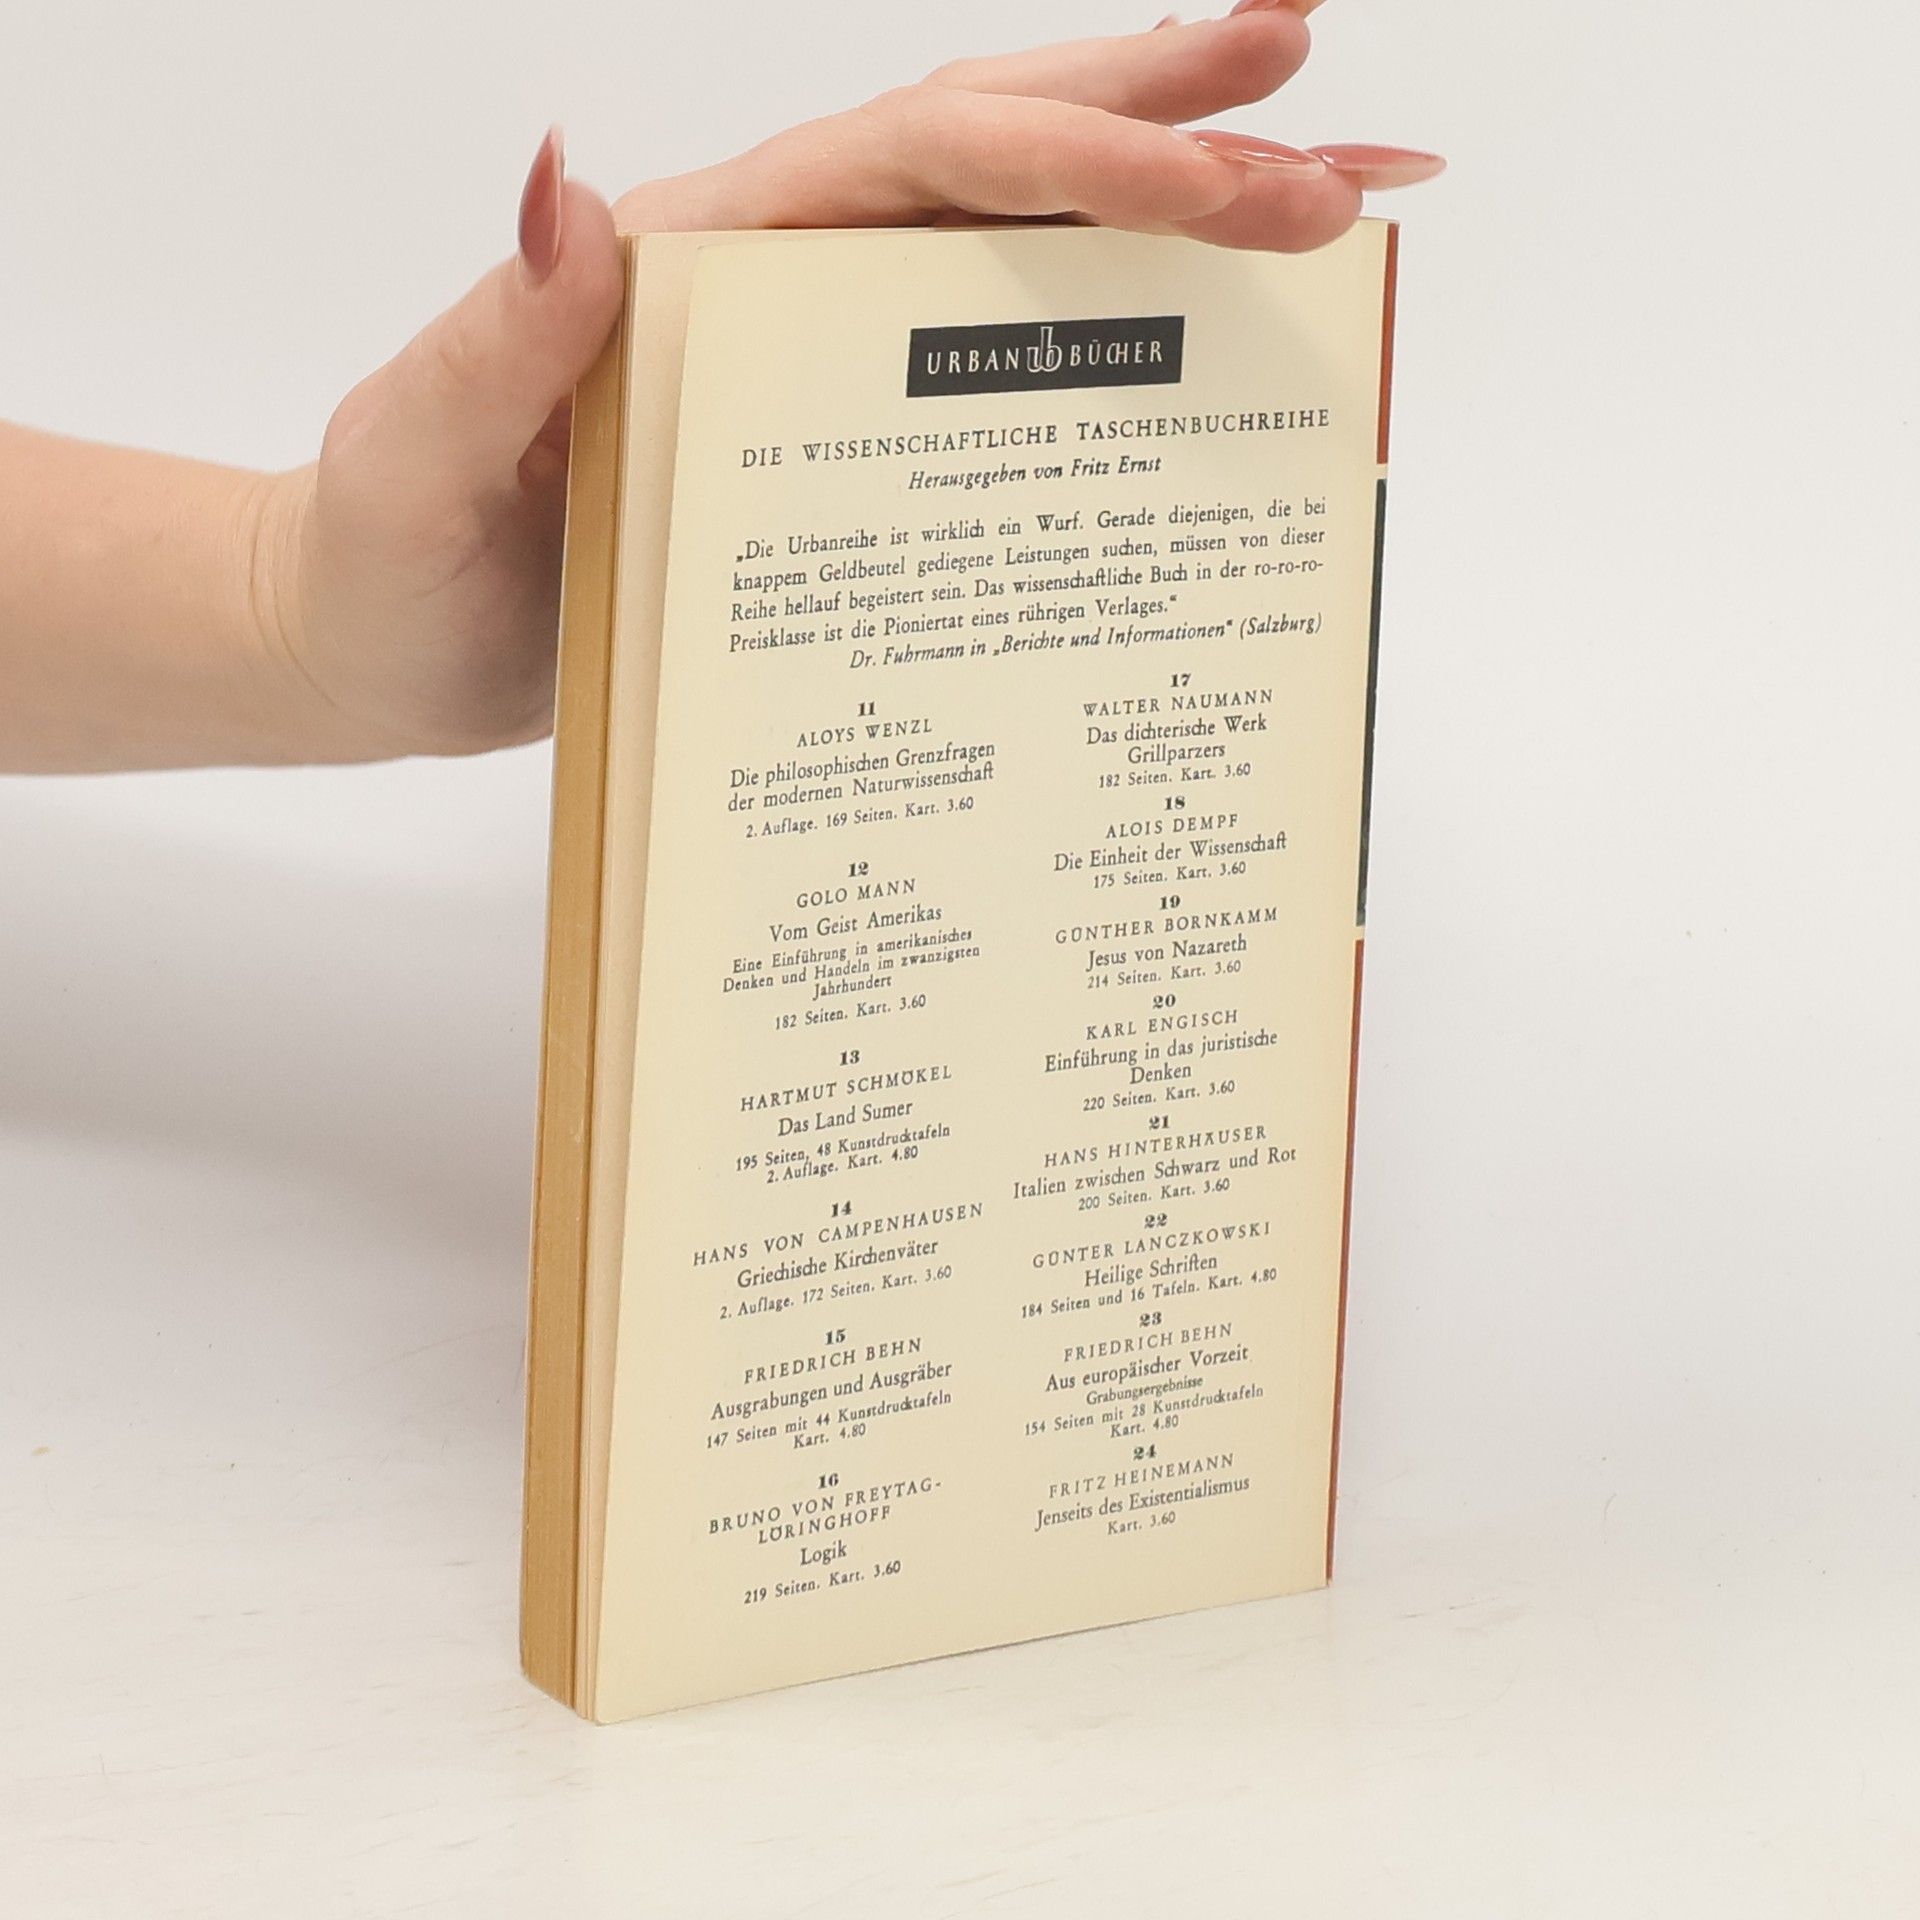 URBAN ub BÜCHER
DIE WISSENSCHAFTLICHE TASCHENBUCHREIHE
Herausgegeben von Fritz Ernst
„Die Urbanreihe ist wirklich ein Wurf. Gerade diejenigen, die bei
knappem Geldbeutel gediegene Leistungen suchen, müssen von dieser
Reihe hellauf begeistert sein. Das wissenschaftliche Buch in der ro-ro-ro-
Preisklasse ist die Pioniertat eines rührigen Verlages.“
Dr. Fuhrmann in „Berichte und Informationen“ (Salzburg)
11
ALOYS WENZL
Die philosophischen Grenzfragen
der modernen Naturwissenschaft
2. Auflage. 169 Seiten. Kart. 3.60
12
GOLO MANN
Vom Geist Amerikas
Eine Einführung in amerikanisches
Denken und Handeln im zwanzigsten
Jahrhundert
182 Seiten. Kart. 3.60
13
HARTMUT SCHMÖKEL
Das Land Sumer
195 Seiten, 48 Kunstdrucktafeln
2. Auflage. Kart. 4.80
14
HANS VON CAMPENHAUSEN
Griechische Kirchenväter
2. Auflage. 172 Seiten. Kart. 3.60
15
FRIEDRICH BEHN
Ausgrabungen und Ausgräber
147 Seiten mit 44 Kunstdrucktafeln
Kart. 4.80
16
BRUNO VON FREYTAG-
LÖRINGHOFF
Logik
219 Seiten. Kart. 3.60
17
WALTER NAUMANN
Das dichterische Werk
Grillparzers
182 Seiten. Kart. 3.60
18
ALOIS DEMPF
Die Einheit der Wissenschaft
175 Seiten. Kart. 3.60
19
GÜNTHER BORNKAMM
Jesus von Nazareth
214 Seiten. Kart. 3.60
20
KARL ENGISCH
Einführung in das juristische
Denken
220 Seiten. Kart. 3.60
21
HANS HINTERHÄUSER
Italien zwischen Schwarz und Rot
200 Seiten. Kart. 3.60
22
GÜNTER LANCZKOWSKI
Heilige Schriften
184 Seiten und 16 Tafeln. Kart. 4.80
23
FRIEDRICH BEHN
Aus europäischer Vorzeit
Grabungsergebnisse
154 Seiten mit 28 Kunstdrucktafeln
Kart. 4.80
24
FRITZ HEINEMANN
Jenseits des Existentialismus
Kart. 3.60